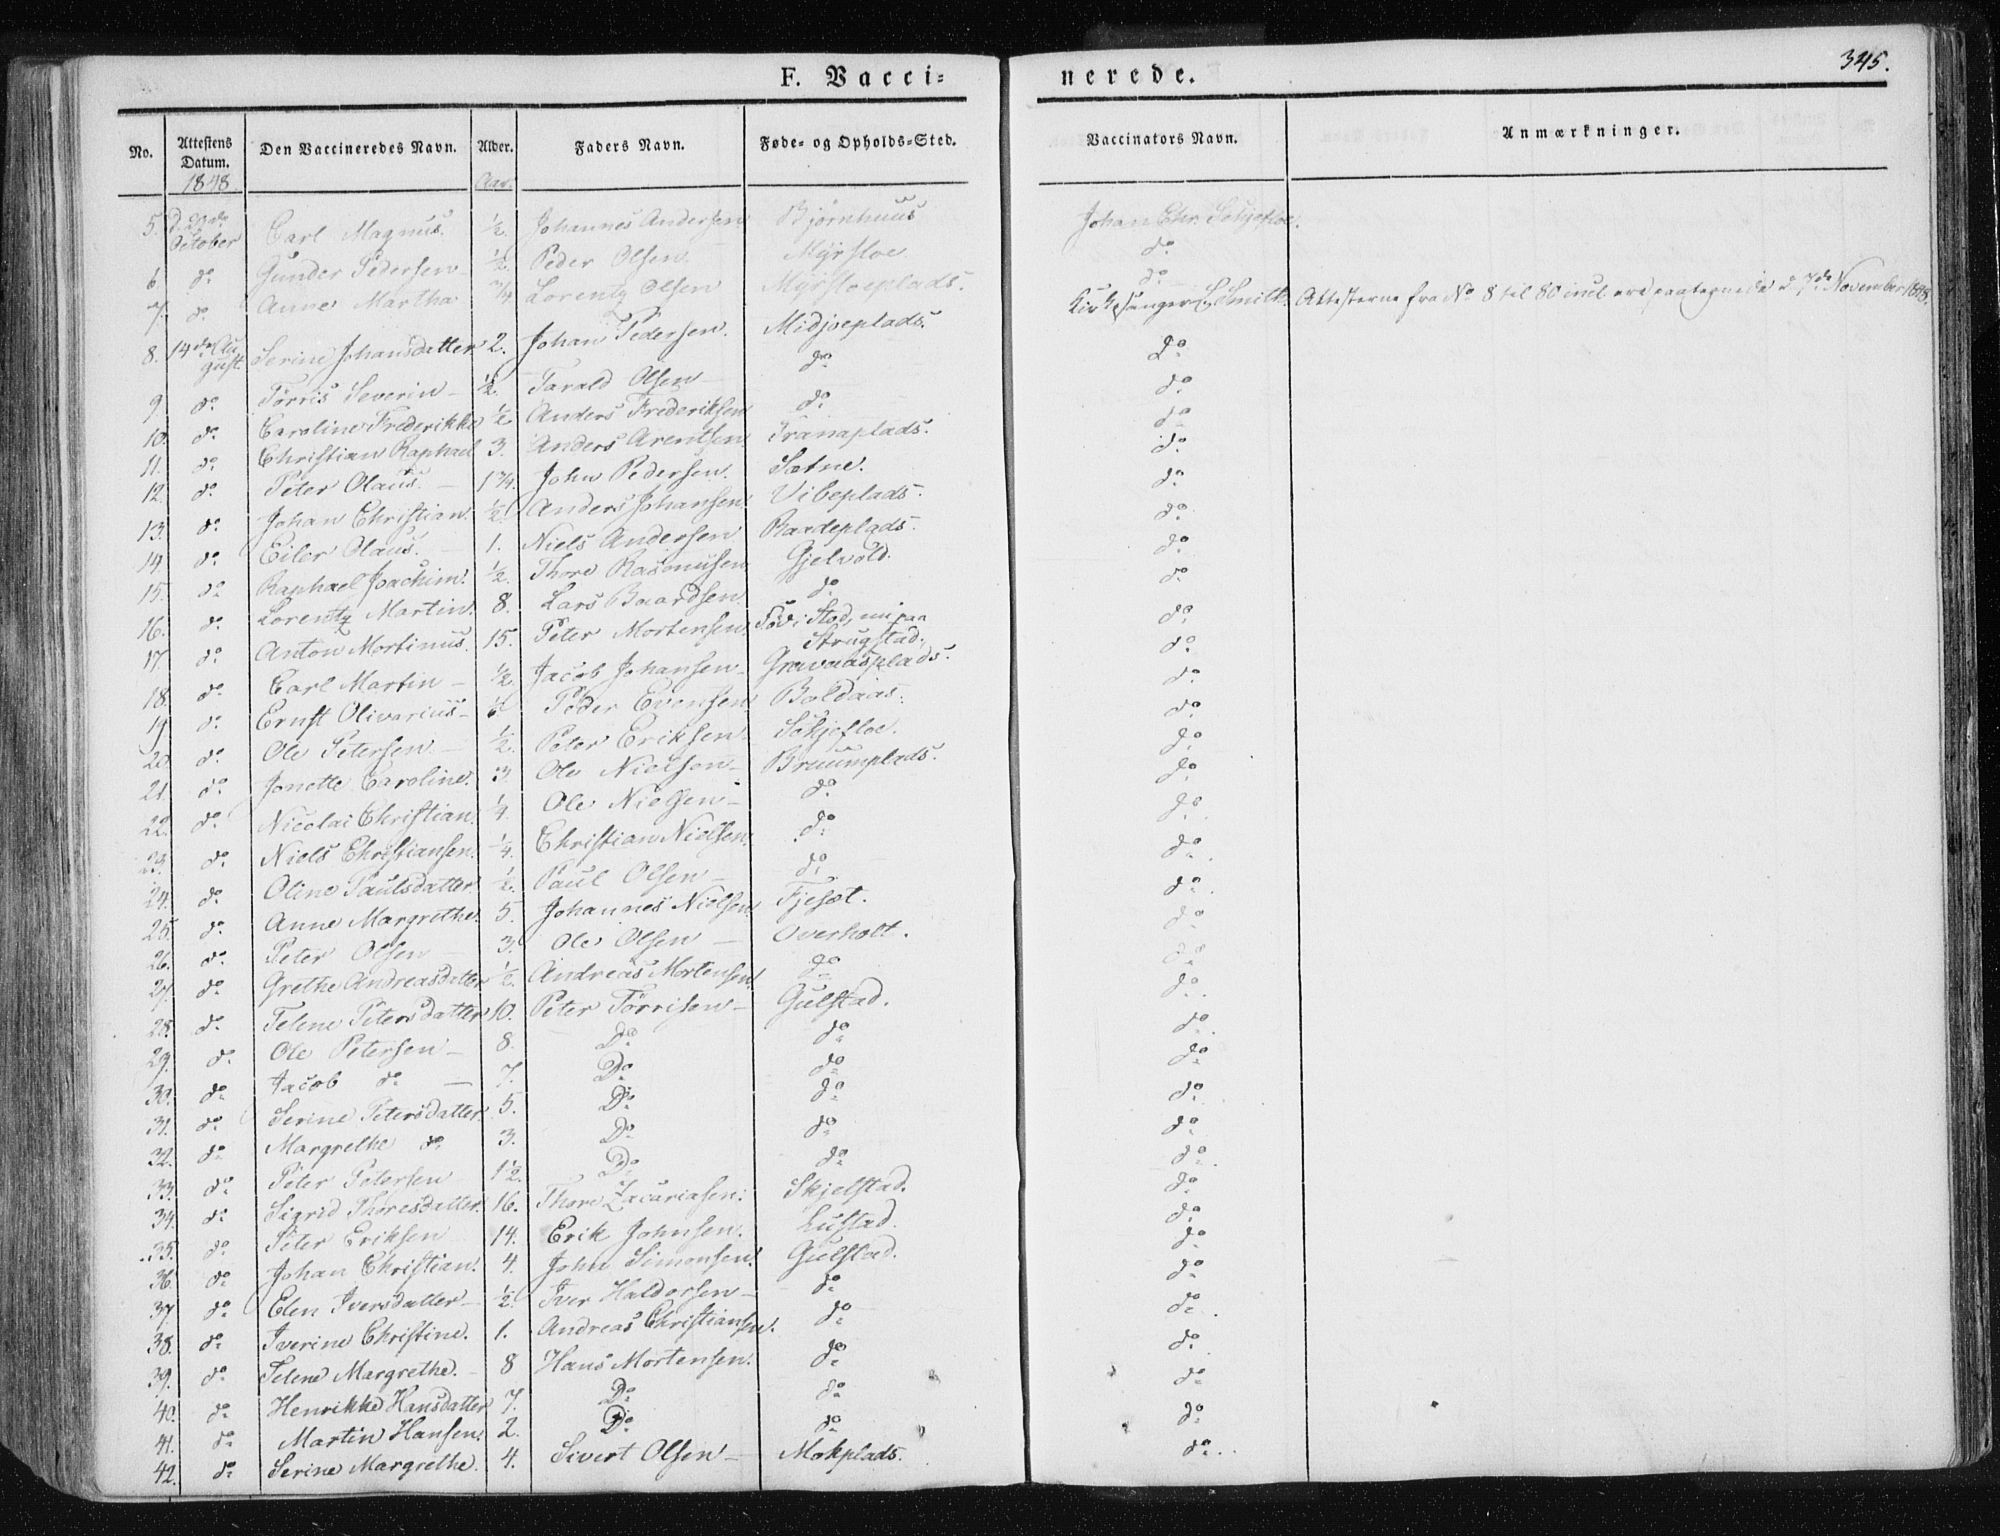 345.
F. Vacci= nerede.
No. Attestens Datum. Den Vaccineredes Navn. Alder. Faders Navn. Føde- og Opholds-Sted. Vaccinators Navn. Anmærkninger.
1848 Aar.
5. d. 29de October Carl Magnus. 1/2 Johannes Andersen Bjørnhuus Johan Chr. Schjefloe.
6 do Gunder Pedersen 1/2 Peder Olsen Myrsloe do
7. do Anne Martha 3/4 Lorentz Olsen Myrsloeplads. do
8. 14de August. Serine Johansdatter 2. Johan Pedersen. Midjoeplads. Kirkesanger Schult. Attesterne fra No 8 til 80 incl ere paategnede d. 7de November 1848.
9 do Torris Severin 1/2 Tarald Olsen do do
10. do Caroline Frederikke 1/2 Anders Frederiksen do do
11. do Christian Raphael 3. Anders Arentsen Tranaplads. do
12. do Peter Olaus. 1 3/4. John Pedersen. Sætne. do
13. do Johan Christian 1/2 Anders Johansen. Vibeplads. do
14 do Eiler Olaus. 1. Niels Andersen Bardeplads. do
15. do Raphael Joachim. 1/2. Thore Rasmusen Gjelvold. do
16. do Lorentz Martin. 8. Lars Baardsen. do do
17. do Anton Martinus. 15. Peter Mortensen. Fød i Stod, nu paa Strugstad. do
18. do Carl Martin 1/2. Jacob Johansen Gravaasplads. do
19 do Ernst Olivarius Peder Evensen Boldaas. do
20. do Ole Petersen 1/2. Peter Eriksen Schjefloe. do
21. do Jonette Caroline. 3. Ole Nielsen Bruumplads. do
22. do Nicolai Christian. 1/4. Ole Nielsen do do
23. do Niels Christiansen. 1/4. Christian Nielsen. do do
24. do Oline Paulsdatter 1/2. Paul Olsen do do
25. do Anne Margrethe. 5. Johannes Nielsen. Fjesæt. do
26. do Peter Olsen 3. Ole Olsen Overholt. do
27. do Grethe Andreasdatter 1/2. Andreas Mortensen. do do
28. do Telene Petersdatter 10. Peter Torrisen Gulstad. do
29. do Ole Petersen 8. Do do do
30. do Jacob do 7. Do do do
31. do Serine Petersdatter 5. Do do do
32. do Margrethe do 3. Do do do
33. do Peter Petersen 1 1/2. Do do do
34. do Sigrid Thoresdatter. 16. Thore Zacariasen. Skjelstad. do
35. do Peter Eriksen 14. Erik Johnsen. Lustad. do
36. do Johan Christian. 4. John Simonsen. Gulstad. do
37. do Elen Iversdatter 1/2. Iver Haldorsen do do
38. do Iverine Christine. 1. Andreas Christiansen. do do
39. do Telene Margrethe. 8 Hans Mortensen. do do
40. do Henrikke Hansdatter 7. Do do do
41. do Martin Hansen. 2. Do do do
42. do Serine Margrethe. 4. Sivert Olsen Mokplads. do